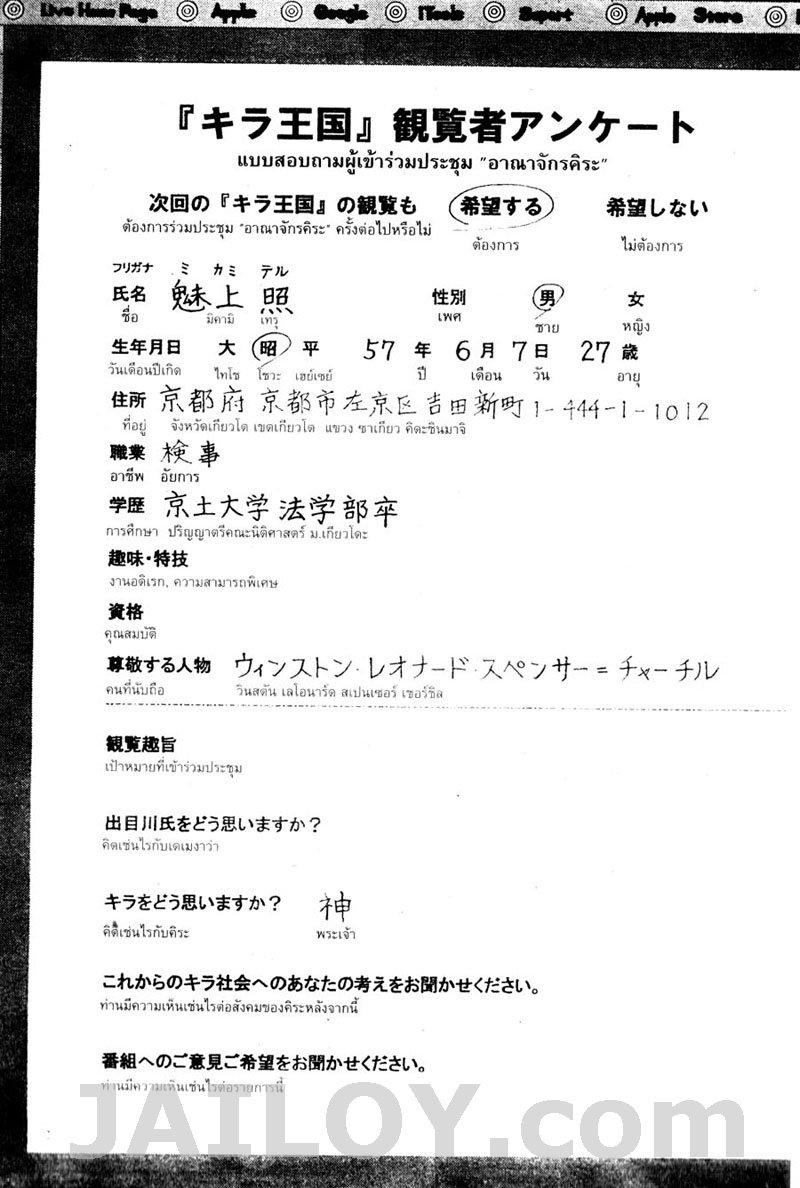 Live Home Page Apple Google iTools Support Apple Store
『キラ王国』観覧者アンケート
แบบสอบถามผู้เข้าร่วมประชุม "อาณาจักรคิระ"
次回の『キラ王国』の観覧も 希望する 希望しない
ต้องการร่วมประชุม "อาณาจักรคิระ" ครั้งต่อไปหรือไม่ ต้องการ ไม่ต้องการ
フリガナ ミ カミ テル
氏名 魅上 照 性別 男 女
ชื่อ มิคามิ เทรุ เพศ ชาย หญิง
生年月日 大 昭 平 57年 6月 7日 27歳
วันเดือนปีเกิด ไทโช โชวะ เฮย์เซย์ ปี เดือน วัน อายุ
住所 京都府 京都市左京区吉田新町1-444-1-1012
ที่อยู่ จังหวัดเกียวโด เขตเกียวโด แขวง ซาเกียว คิดะชินมาจิ
職業 検事
อาชีพ อัยการ
学歴 京土大学 法学部卒
การศึกษา ปริญญาตรีคณะนิติศาสตร์ ม.เกียวโดะ
趣味・特技
งานอดิเรก, ความสามารถพิเศษ
資格
คุณสมบัติ
尊敬する人物 ウィンストン・レオナード・スペンサー=チャーチル
คนที่นับถือ วินสตัน เลโอนาร์ด สเปนเซอร์ เชอร์ชิล
観覧趣旨
เป้าหมายที่เข้าร่วมประชุม
出目川氏をどう思いますか?
คิดเช่นไรกับเดเมงาว่า
キラをどう思いますか? 神
คิดเช่นไรกับคิระ พระเจ้า
これからのキラ社会へのあなたの考えをお聞かせください。
ท่านมีความเห็นเช่นไรต่อสังคมของคิระหลังจากนี้
番組へのご意見ご希望をお聞かせください。
ท่านมีความเห็นเช่นไรต่อรายการนี้
JAILOY.com